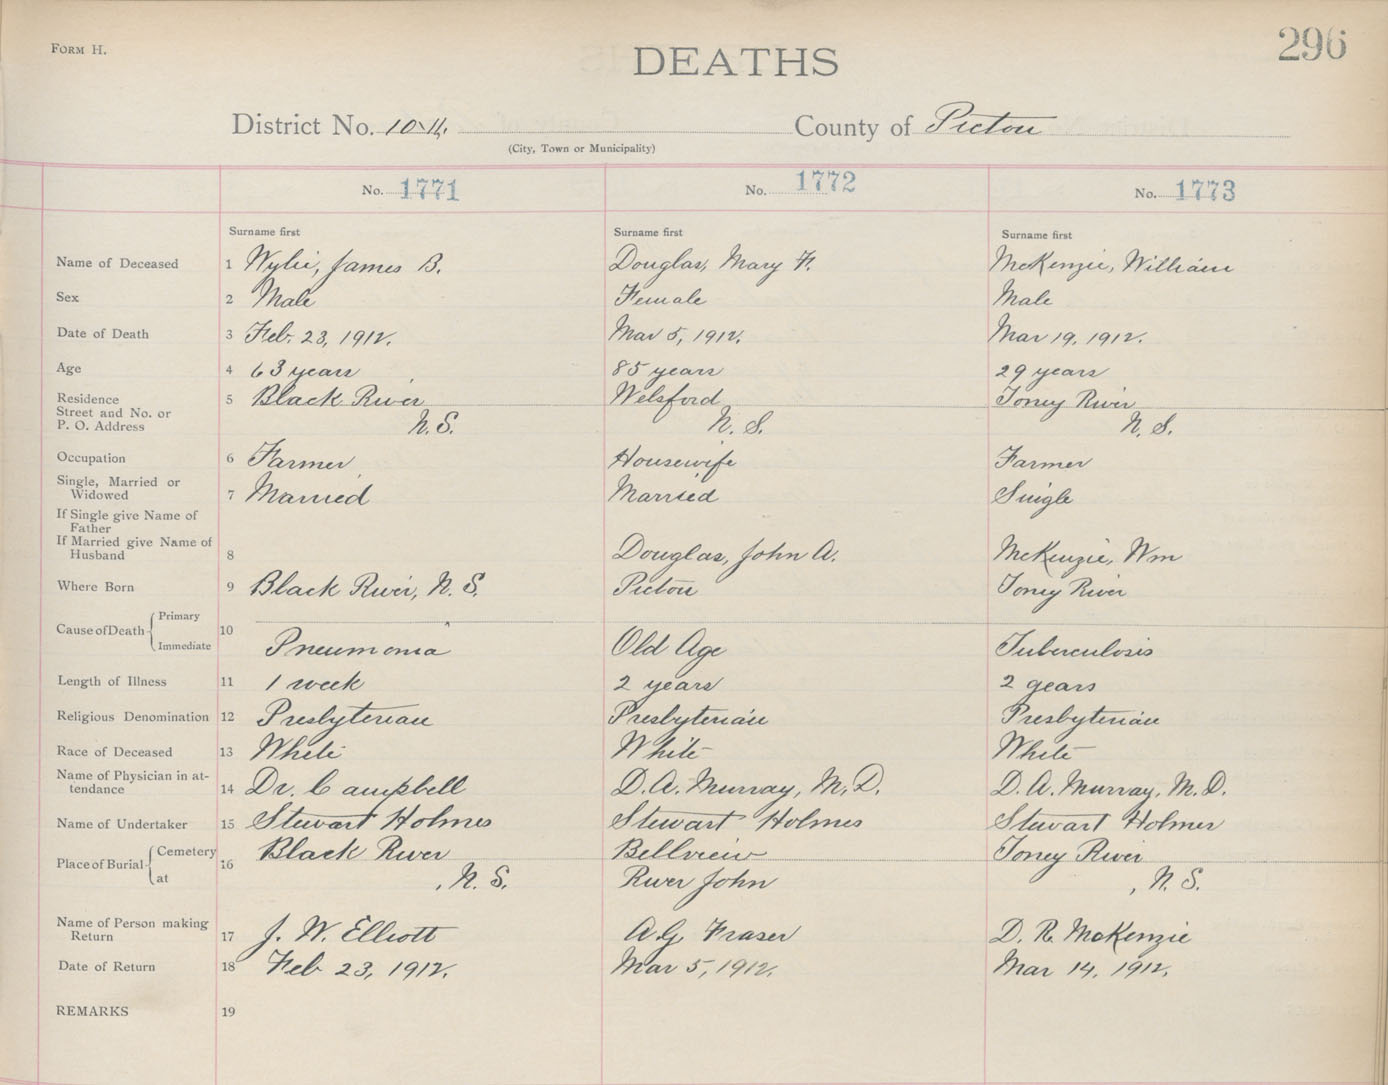 FORM H.
296
DEATHS
District No. 10 County of Pictou
(City, Town or Municipality)
No. 1771 No. 1772 No. 1773
Surname first Surname first Surname first
Name of Deceased 1 Wylie, James B. Douglas, Mary F. McKenzie, William
Sex 2 Male Female Male
Date of Death 3 Feb. 23, 1912. Mar 5, 1912. Mar 19, 1912.
Age 4 63 years 85 years 29 years
Residence 5 Black River Welsford Toney River
Street and No. or
P. O. Address N.S. N. S. N. S.
Occupation 6 Farmer Housewife Farmer
Single, Married or
Widowed 7 Married Married Single
If Single give Name of
Father
If Married give Name of
Husband 8 Douglas, John A. McKenzie, Wm
Where Born 9 Black River, N. S. Pictou Toney River
Cause of Death Primary 10
Immediate Pneumonia Old Age Tuberculosis
Length of Illness 11 1 week 2 years 2 years
Religious Denomination 12 Presbyterian Presbyterian Presbyterian
Race of Deceased 13 White White White
Name of Physician in at-
tendance 14 Dr. Campbell D. A. Murray, M. D. D. A. Murray, M. D.
Name of Undertaker 15 Stewart Holmes Stewart Holmes Stewart Holmes
Place of Burial Cemetery 16 Black River Bellview Toney River
at , N. S. River John , N. S.
Name of Person making
Return 17 J. W. Elliott A. G. Fraser D. R. McKenzie
Date of Return 18 Feb 23, 1912. Mar 5, 1912. Mar 14, 1912.
REMARKS 19